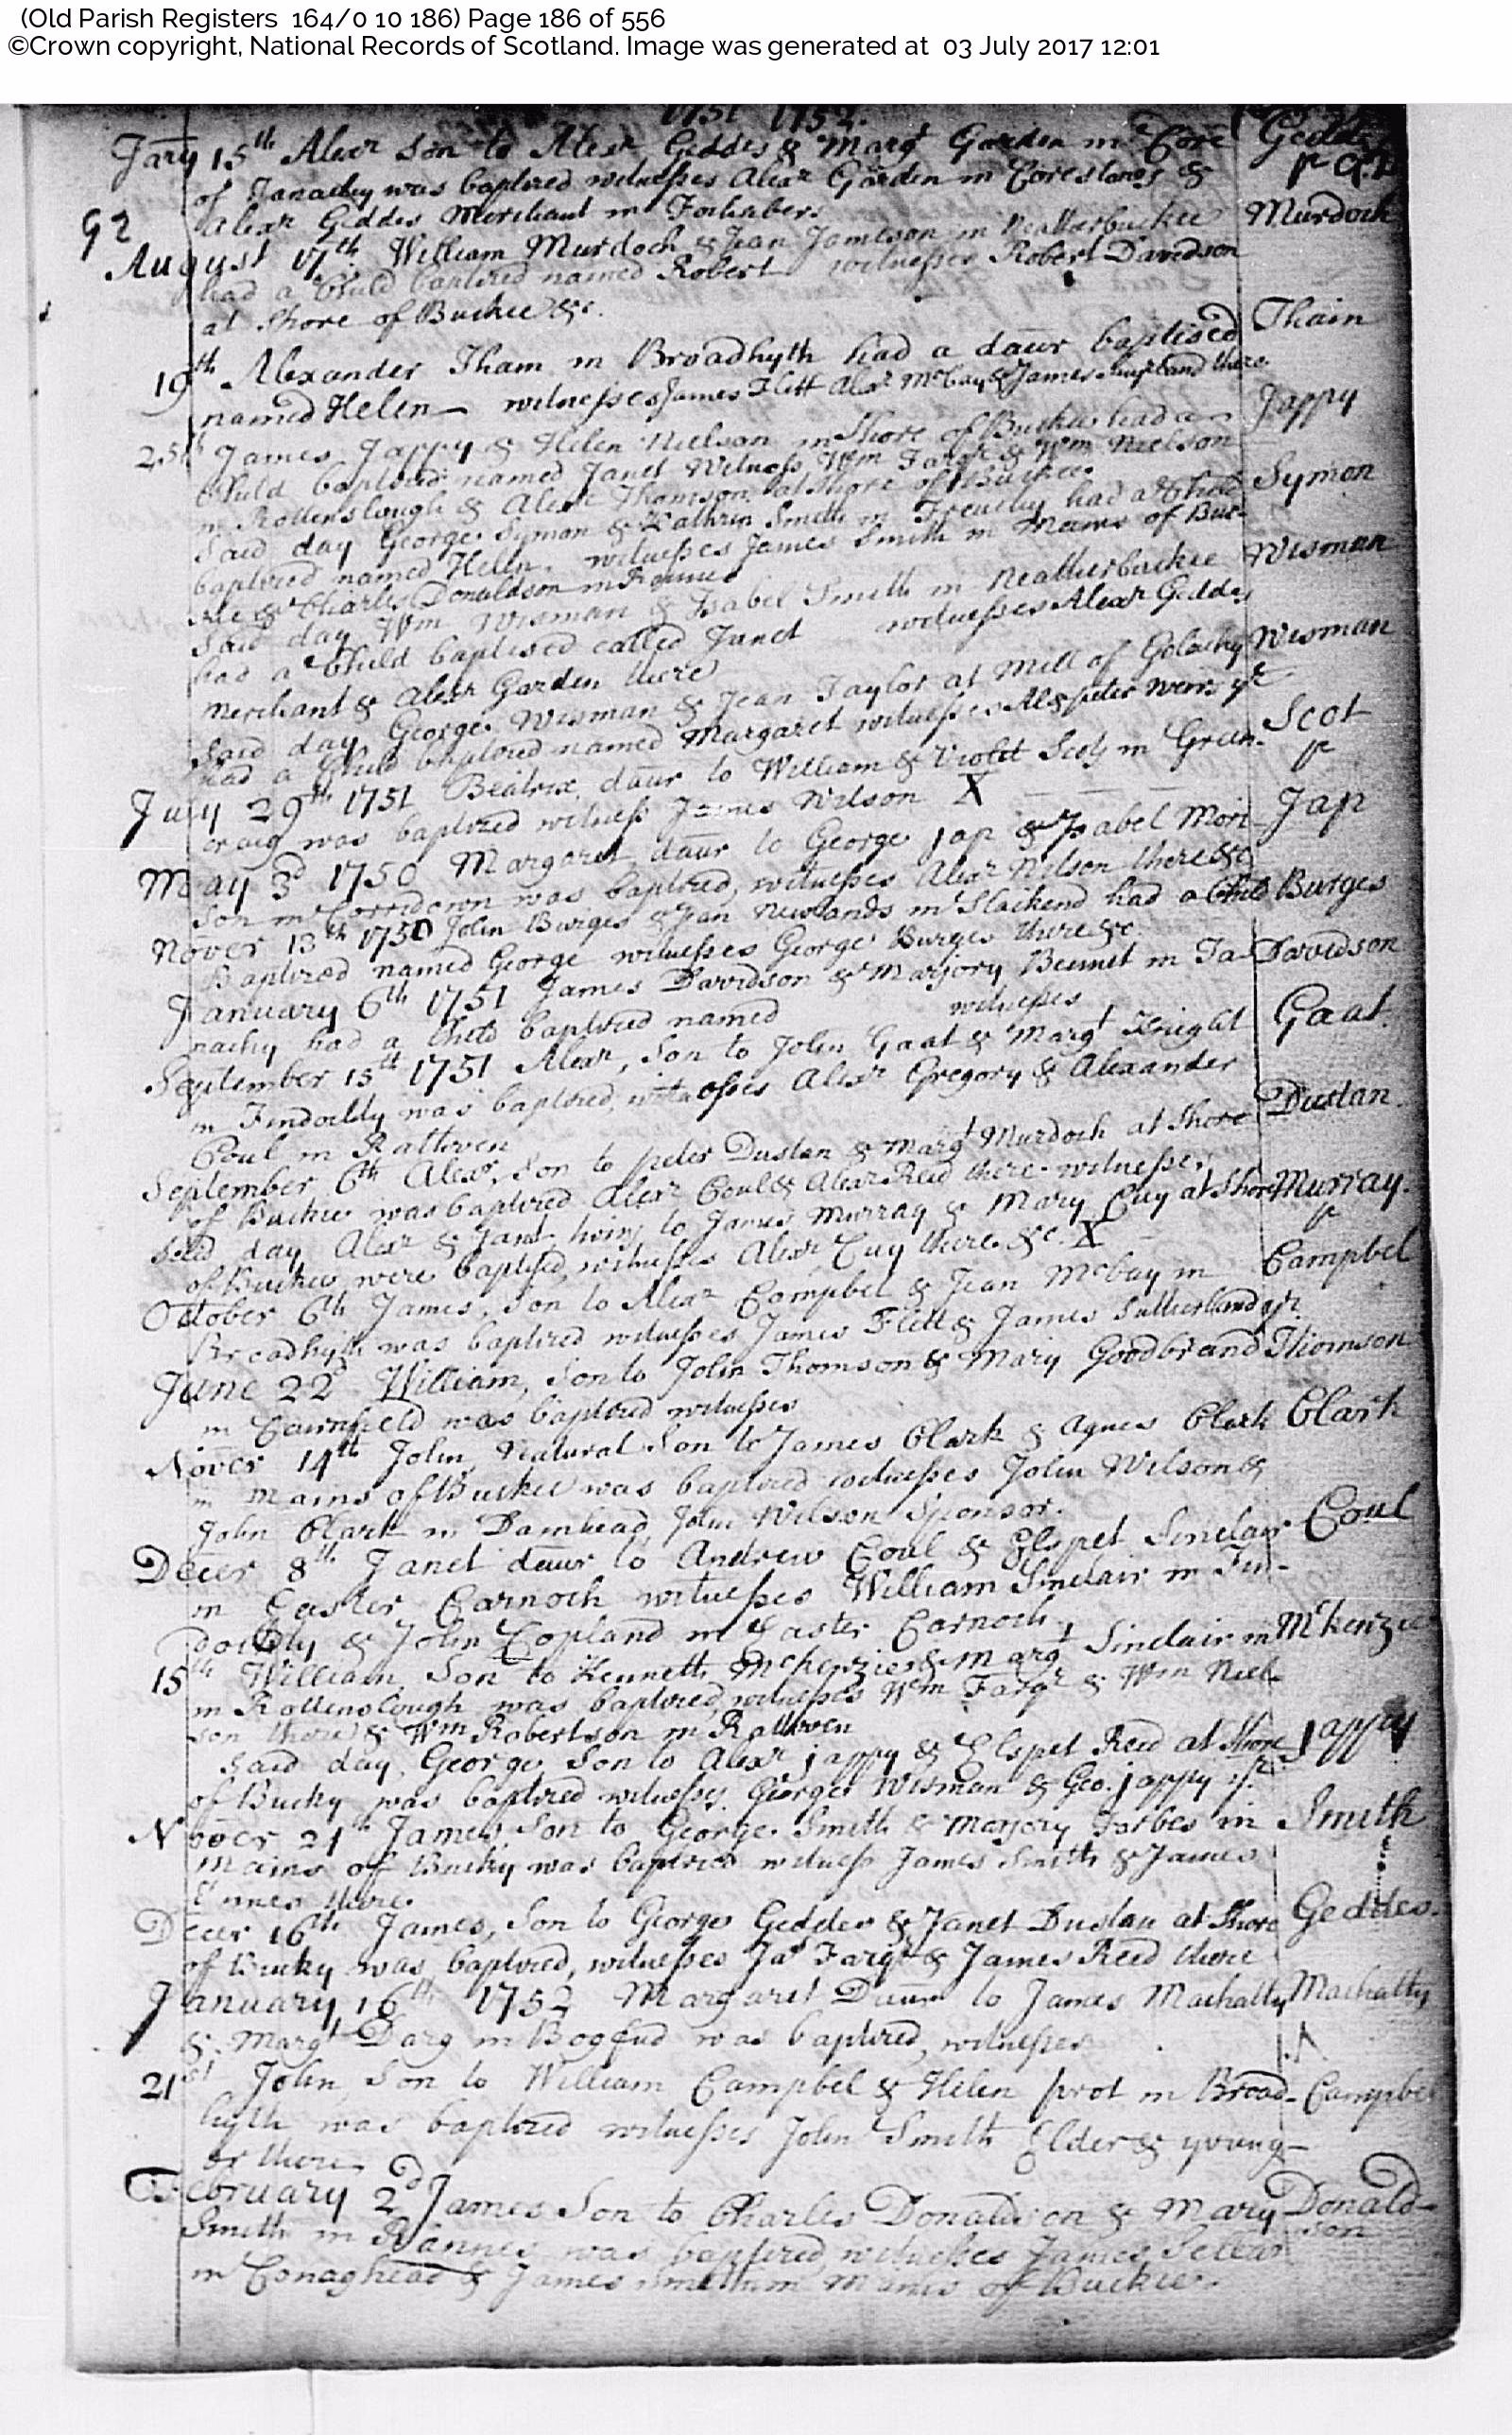 (Old Parish Registers 164/0 10 186) Page 186 of 556
©Crown copyright, National Records of Scotland. Image was generated at 03 July 2017 12:01
1751 1752.
Jary 15th Alexr Son to Alexr Geddes & Margt Garden in Core Geddes
of Tanachy was baptized witnesses Alexr Garden in Coreslands & pd
92 Alexr Geddes Merchant in Fochabers Murdoch
August 17th William Murdoch & Jean Jameson in Neatherbuckie
had a Child baptized named Robert witnesses Robert Davidson
at Shore of Buckie &c.
19th Alexander Thain in Broadhyth had a daur baptised Thain
named Helen witnesses James Flett Alexr McBay & James there
25th James Jappy & Helen Nielson in Shore of Buckie had a Jappy
Child baptized named Janet Witness Wm Farqr & Wm Nielson
in Rottenslough & Alexr Thomson at Shore of Buckie.
Said day George Symon & Kathrin Smith in Freuchy had a Child Symon
baptized named Helen, witnesses James Smith in Mains of Buc-
kie & Charles Donaldson in Rannes
Said day Wm Wisman & Isabel Smith in Neatherbuckie Wisman
had a Child baptised called Janet witnesses Alexr Geddes
Merchant & Alexr Garden there
Said day George Wisman & Jean Taylor at Mill of Golachy Wisman
had a Child baptized named Margaret witnesses Al & peter Weirs yr
July 29th 1751 Beatrix, daur to William & Violet Scots in Green- Scot
craig was baptized witness James Wilson X p
May 3d 1750 Margaret, daur to George Jap & Isabel Mori- Jap
son in Corridown was baptized, witnesses Alexr Nilson there &c
Nover 13th 1750 John Burges & Jean Newlands in Slackend had a Child Burges
Baptized named George witnesses George Burges there &c.
January 6th 1751 James Davidson & Marjory Bennet in Ta- Davidson
nachy had a Child baptized named witnesses
September 15th 1751 Alexr, Son to John Gaat & Margt Knight Gaat.
in Findochty was baptized, witnesses Alexr Gregory & Alexander
Coul in Rathven
September 6th Alexr, Son to peter Dustan & Margt Murdoch at Shore Dustan.
of Buckie was baptized Alexr Coul & Alexr Reed there witnesses
Said day Alexr & Jant twins to James Murray & Mary Cuy at Shore Murray.
of Buckie were baptised, witnesses Alexr Cuy there &c. X p
October 6th James, Son to Alexr Campbel & Jean McBay in Campbel
Broadhyth was baptized witnesses James Flett & James Sutherland yr.
June 22d William, Son to John Thomson & Mary Goodbrand Thomson
in Cairnfield was baptized witnesses
Nover 14th John, Natural Son to James Clark & Agnes Clark Clark
in Mains of Buckie was baptized witnesses John Wilson &
John Clark in Damhead, John Wilson Sponsor.
Decer 8th Janet daur to Andrew Coul & Elspet Sinclair Coul
in Easter Carnoch witnesses William Sinclair in Fin-
dochty & John Copland in Easter Carnoch
15th William, Son to Kenneth McKenzie & Margt Sinclair in McKenzie
in Rottenslough was baptized, witnesses Wm Farqr & Wm Niel-
son there & Wm Robertson in Rathven
Said day, George, Son to Alexr Jappy & Elspet Reed at Shore Jappy
of Bucky was baptized witnesses George Wisman & Geo. Jappy yr.
Nover 21st James, Son to George Smith & Marjory Forbes in Smith
Mains of Bucky was baptized witness James Smith & James
Innes there.
Decer 16th James, Son to George Geddes & Janet Dustan at Shore Geddes.
of Bucky was baptized, witnesses Jas Farqr & James Reed there
January 16th 1752 Margaret Daur to James Machatty Machatty
& Margt Darg in Bogend was baptized, witnesses
21st John, Son to William Campbel & Helen prot in Broad- Campbel
hyth was baptized witnesses John Smith Elder & young-
er there
February 2d James Son to Charles Donaldson & Mary Donald-
Smith in Rannes was baptized, witnesses James Sellar son
in Conaghead & James Smith in Mains of Buckie.